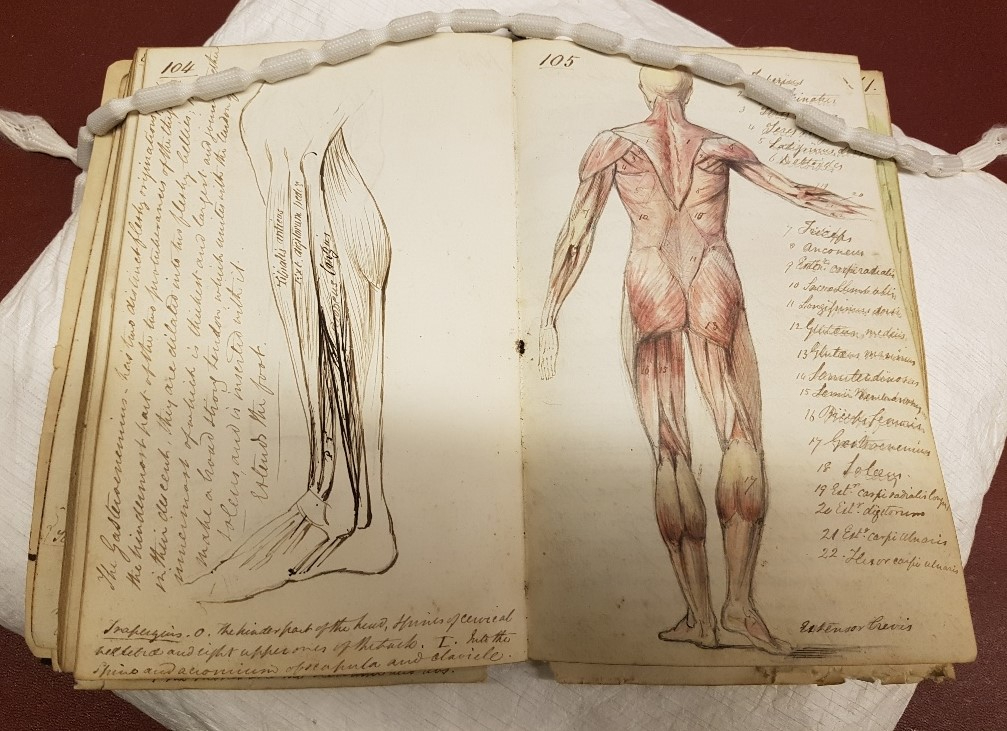 104
The Gasterocnemius. has two distinct fleshy originations
the hindermost part of the two protuberances of the
in their descent, they are dilated into two fleshy bellies,
innermost of which is thickest and largest and
make a broad strong tendon which unite with the tendon
soleus and is inserted with it.
Extends the foot.
Tibialis anticus
Ext. digitorum
longus
Trapezius. O. the hinder part of the head, spines of cervical
and eight upper ones of the back. I. Into the
spine and acromium of scapula and clavicle.
105
5 Latissimus d
6 Deltoides
7 Triceps
8 anconeus
9 Extr. carpi radialis
10 Sacro Lumbalis
11 Longissimus dorsi
12 Glutæus medius
13 Glutæus maximus
14 Semitendinosus
15 Semi Membranosus
16 Biceps femoris
17 Gastrocnemius
18 Soleus
19 Estr. carpi radialis longus
20 Estr. digitorum
21 Estr. carpi ulnaris
22. Flexor carpi ulnaris
Extensor brevis